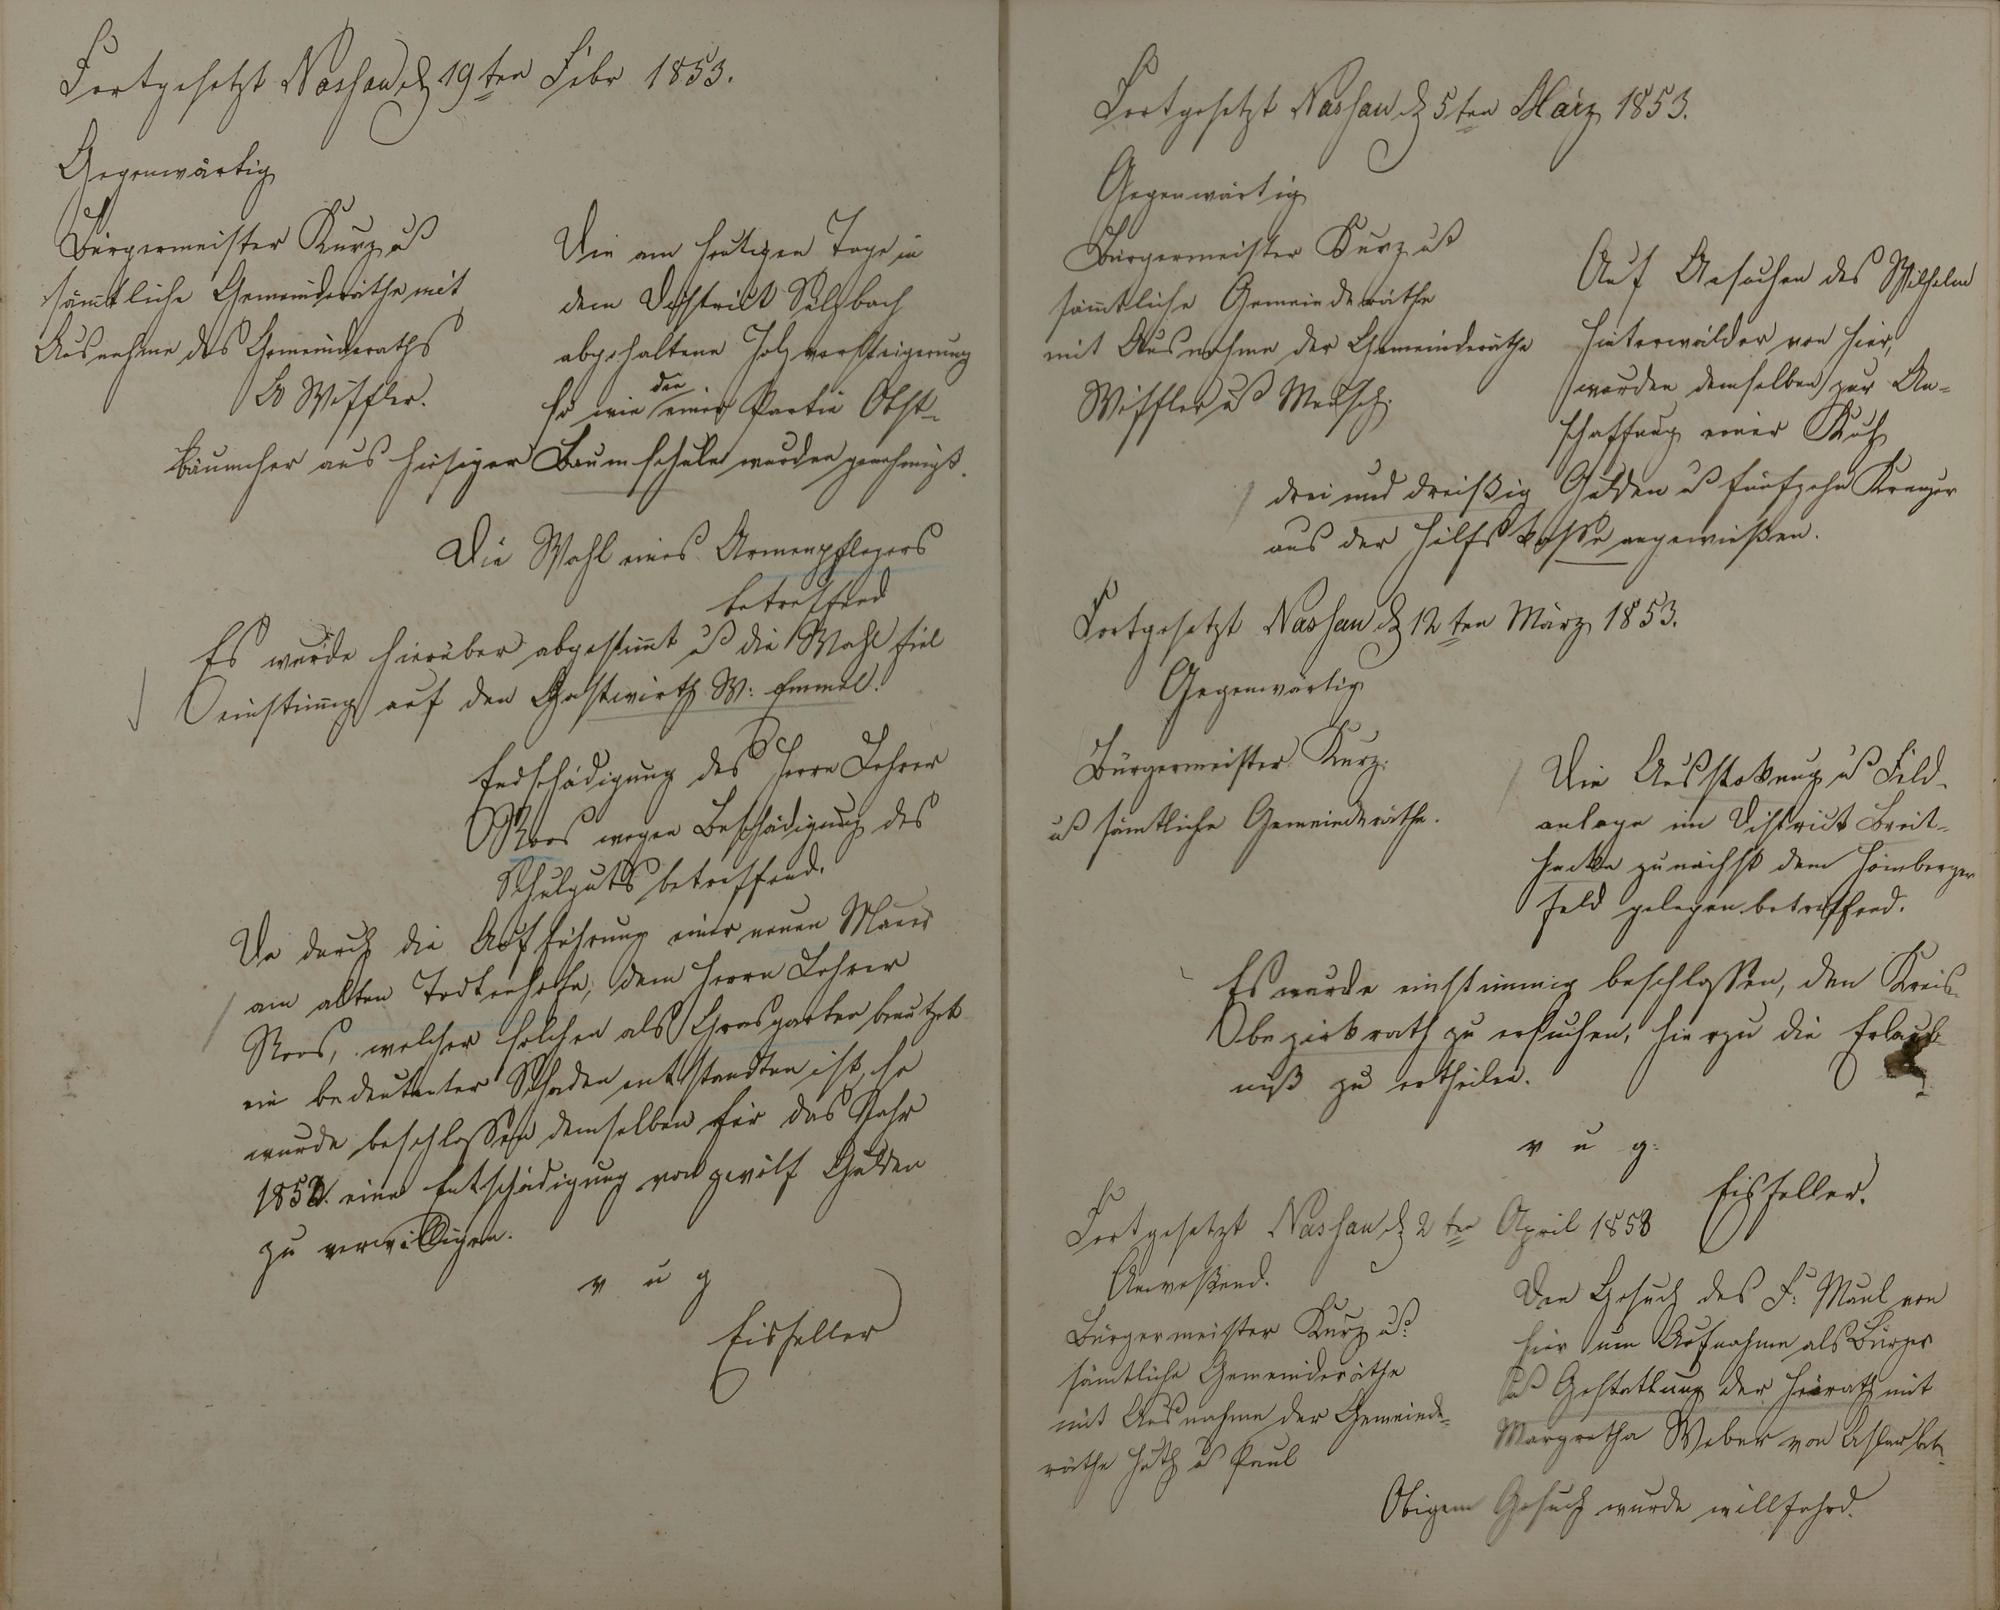 Fortgesetzt Nassau d 19ten Febr 1853.
Gegenwärtig
Bürgermeister Kurz u
sämtliche Gemeinderäthe mit
Ausnahme des Gemeinderaths
Wiffler.
Die am heutigen Tage in
dem Distrikt Sulzbach
abgehaltene Holzversteigerung
den
so wie einer Partie Obst-
bäumcher aus hiesiger Baumschule wurden genehmigt.
Die Wahl eines Armenpflegers
betreffend
Es wurde hierüber abgestimmt u die Wahl fiel
einstimig auf den Gastwirth W: Emmel.
Endschädigung des Herrn Lehrer
Roos wegen Beschädigung des
Schulguts betreffend.
Da durch die Aufführung einer neuen Mauer
am alten Todtenhofe, dem Herrn Lehrer
Roos, welcher solchen als Grasgarten benutzt
ein bedeutenter Schaden entstandten ist, so
wurde beschlossen demselben für das Jahr
1852. eine Entschädigung von zwölf Gulden
zu verwilligen.
v u g
Eisfeller
Fortgesetzt Nassau d 5ten März 1853.
Gegenwärtig
Bürgermeister Kurz u
sämmtliche Gemeinderäthe
mit Ausnahme der Gemeinderäthe
Wiffler u Mensch.
Auf Ansuchen des Wilhelm
Hinterwälder von hier,
wurden demselben zur An-
schaffung einer Kuh
drei und dreißig Gulden u fünfzehn Kreuzer
aus der Hilfskasse angewießen.
Fortgesetzt Nassau d 12ten März 1853.
Gegenwärtig
Bürgermeister Kurz.
u sämtliche Gemeinderäthe.
Die Ausstokung u Feld-
anlage im District Breit-
hecke zunächst dem Hömberger
Feld gelegen betreffend.
Es wurde einstimmig beschlossen, den Kreis-
bezirkrath zu ersuchen, hierzu die Erlaub-
niß zu ertheilen.
v u g:
Eisfeller.
Fortgesetzt Nassau d 2ten April 1853
Anweßend.
Bürgermeister Kurz u
sämtliche Gemeinderäthe
mit Ausnahme der Gemeinde-
räthe Huth u Paul
Den Gesuch des F: Maul von
hier um Aufnahme als Bürger
u Gestattung der Heirath mit
Margretha Weber von betr.
Obigem Gesuch wurde willfahrd.